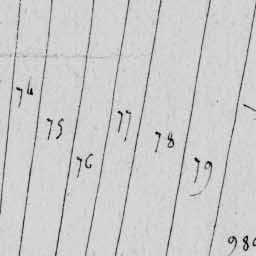 74
75
76
77
78
79